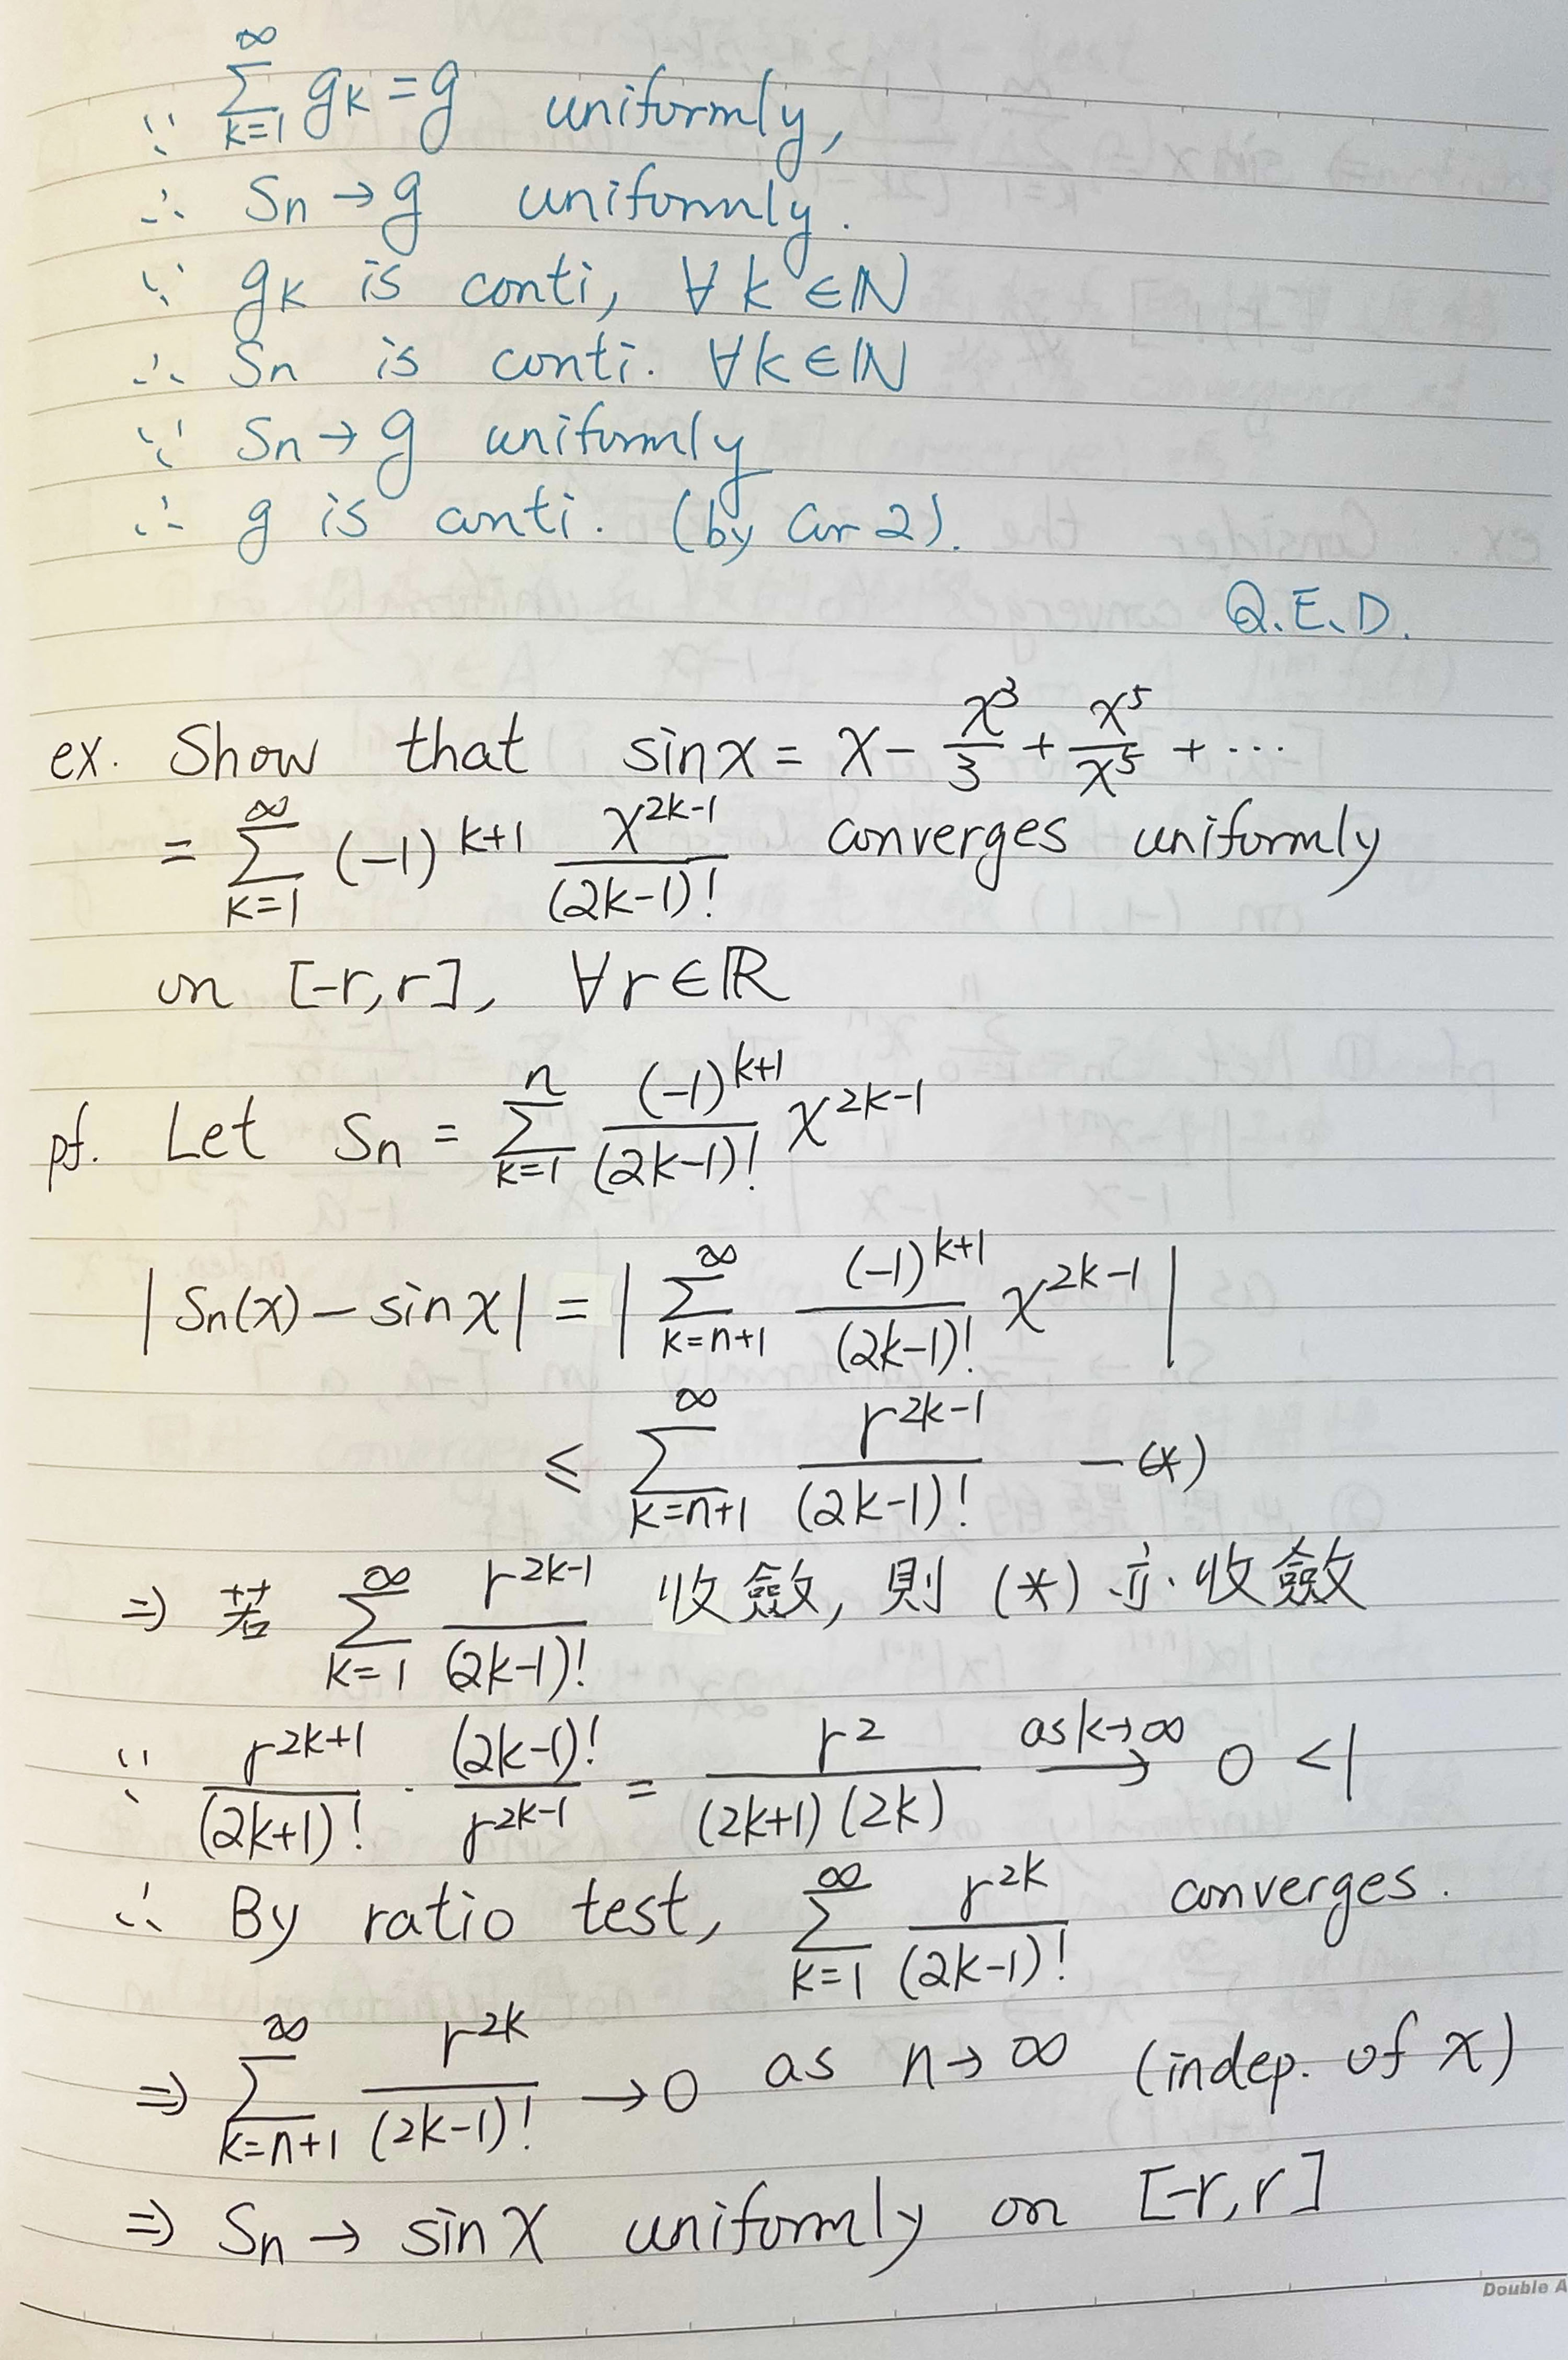 ∵ $\sum_{k=1}^{\infty} g_k = g$ uniformly,
∴ $S_n \to g$ uniformly.
∵ $g_k$ is conti, $\forall k \in \mathbb{N}$
∴ $S_n$ is conti. $\forall k \in \mathbb{N}$
∵ $S_n \to g$ uniformly
∴ $g$ is conti. (by Cor 2).
Q.E.D.
ex. Show that $\sin x = x - \frac{x^3}{3} + \frac{x^5}{x^5} + \cdots$
$= \sum_{k=1}^{\infty} (-1)^{k+1} \frac{x^{2k-1}}{(2k-1)!}$ converges uniformly
on $[-r, r]$, $\forall r \in \mathbb{R}$
pf. Let $S_n = \sum_{k=1}^{n} \frac{(-1)^{k+1}}{(2k-1)!} x^{2k-1}$
$|S_n(x) - \sin x| = \left| \sum_{k=n+1}^{\infty} \frac{(-1)^{k+1}}{(2k-1)!} x^{2k-1} \right|$
$\leq \sum_{k=n+1}^{\infty} \frac{r^{2k-1}}{(2k-1)!}$ —(*)
⇒ 若 $\sum_{k=1}^{\infty} \frac{r^{2k-1}}{(2k-1)!}$ 收斂, 則 (*) 亦收斂
∵ $\frac{r^{2k+1}}{(2k+1)!} \cdot \frac{(2k-1)!}{r^{2k-1}} = \frac{r^2}{(2k+1)(2k)} \xrightarrow{as k \to \infty} 0 < 1$
∴ By ratio test, $\sum_{k=1}^{\infty} \frac{r^{2k}}{(2k-1)!}$ converges.
⇒ $\sum_{k=n+1}^{\infty} \frac{r^{2k}}{(2k-1)!} \to 0$ as $n \to \infty$ (indep. of $x$)
⇒ $S_n \to \sin x$ uniformly on $[-r, r]$
Double A